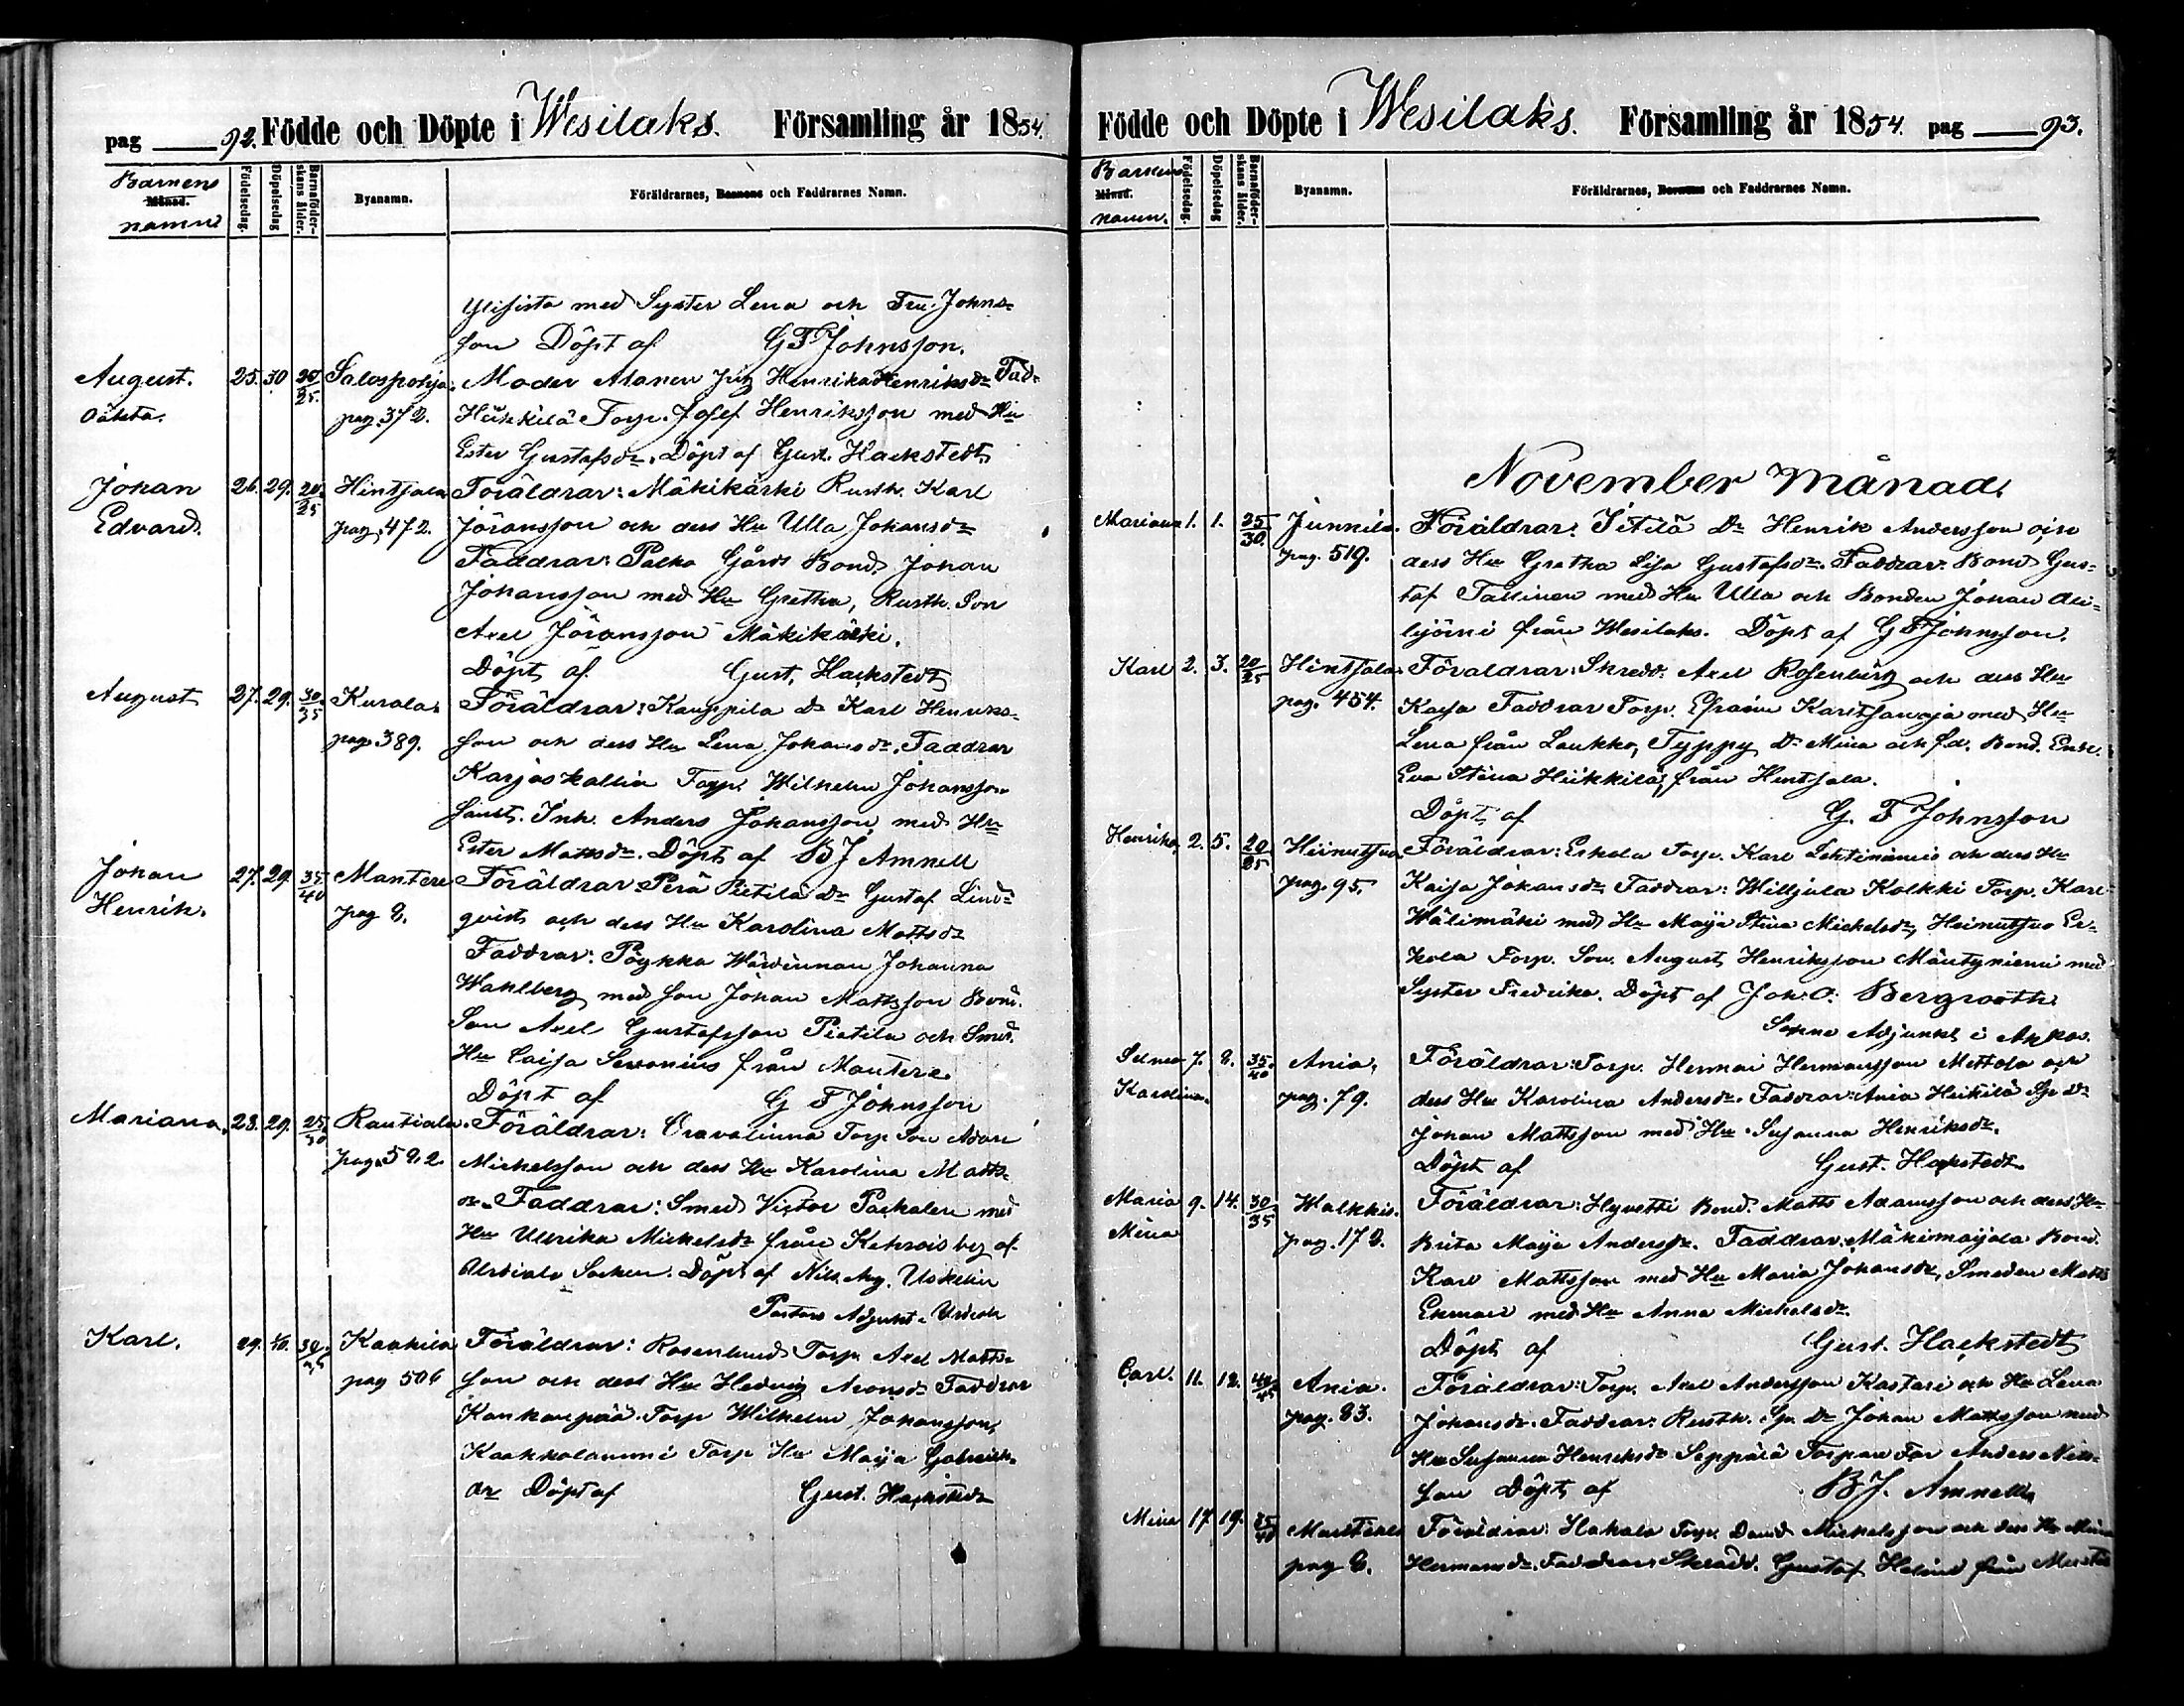 pag 92. Födde och Döpte i Wesilaks. Församling år 1854.
Barnens Månad. namn
Födelsedag.
Döpelsedag
Barnaföder-skans ålder.
Byanamn.
Föräldrarnes, Barnens och Faddrarnes Namn.
med Syster Lena och Fru Johns-
son Döpt af G F Johnsson.
August. 25. 30. 20/25. Salospohja. Moder Alanen pig Henrika Henriksdr Fad-
oäkta. pag. 372. Heikkilä Torp. Josef Henriksson med Hu
Ester Gustafsdr. Döpt af Gust. Hackstedt
Johan 26. 29. 20/25 Hintsala Föräldrar: Mäkikärki Rusth. Karl
Edvard. pag. 472. Jöransson och dess Hu Ulla Johansdr
Faddrar: Palho Gårds Bond. Johan
Johansson med Hu Gretha, Rusth. Son
Axel Jöransson Mäkikärki.
Döpt af Gust. Hackstedt
August 27. 29. 30/35 Kurala. Föräldrar: Kauppila Dr Karl Henriks-
pag. 389. son och dess Hu Lena Johansdr. Faddrar
Karjoskallia Torp. Wilhelm Johansson
samt. Inh. Anders Johansson med Hu
Ester Mattsdr. Döpt af B J Amnell
Johan 27. 29. 35/40 Mantere Föräldrar Perä Pietilä Dr Gustaf Lind-
Henrik. pag 8. qvist och dess Hu Karolina Mattsdr
Faddrar: Pöykkä Wärdinnan Johanna
Wahlberg med son Johan Mattsson Bond.
Son Axel Gustafsson Pietila och Smed.
Hu Caisa Sevonius från Mantere
Döpt af G F Johnsson
Mariana. 28. 29. 25/30 Rautiala. Föräldrar: Oravalinna Torp. Son Adam
pag. 582. Michelsson och dess Hu Karolina Matts-
dr. Faddrar: Smed Victor Packalen med
Hu Ullrika Michelsdr från Kehrois by af
Urdiala Socken. Döpt af Nils Aug. Uskelin
Pastors Adjunkt i Urdiala
Karl. 29. 1/10. 30/35 Kaakila Föräldrar: Rosenlund Torp. Axel Matts-
pag 506 son och dess Hu Hedvig Aronsdr Faddrar
Kankanpää Torp Wilhelm Johansson,
Kaakkolammi Torp Hu Maija Gabriels-
dr Döpt af Gust. Hackstedt
Födde och Döpte i Wesilaks. Församling år 1854. pag 93.
Barnens Månad. namn.
Födelsedag.
Döpelsedag
Barnaföder-skans ålder.
Byanamn.
Föräldrarnes, Barnens och Faddrarnes Namn.
November Månad.
Mariana 1. 1. 25/30. Junnila. Föräldrar: Dr Henrik Andersson och
pag. 519. dess Hu Gretha Lisa Gustafsdr. Faddrar. Bond Gus-
taf Tallinen med Hu Ulla och Bonden Johan Ali-
från Wesilaks. Döpt af G F Johnsson.
Karl 2. 3. 20/25 Hintsala Föräldrar: Skredd. Axel Rosenberg och dess Hu
pag. 454. Kaisa Faddrar Torp. Efraim med Hu
Lena från Laukko, Typpy Dr Mina och f.d. Bond. Enk.
Eva Stina Heikkilä, från Hintsala.
Döpt af G. F Johnsson
Henrika 2. 5. 20/25 Heinutsuo Föräldrar: Erkola Torp. Karl Lehtiniemi och dess Hu
pag. 95. Kaisa Johansdr Faddrar: Williala Kolkki Torp. Karl
Wälimäki med Hu Maija Stina Michelsdr, Heinutsuo Er-
kola Torp. Son. August Henriksson Mäntyniemi med
Syster Fredrika. Döpt af Joh: O: Bergrooth
Sokne Adjunkt i Akkas.
Selma 7. 8. 35/40 Ania. Föräldrar: Torp. Herman Hermansson Mettola och
Karolina. pag. 79. dess Hu Karolina Andersdr. Faddrar: Ania Heikilä Sp Dr
Johan Mattsson med Hu Susanna Henriksdr.
Döpt af Gust. Hackstedt
Maria 9. 14. 30/35 Walkkis. Föräldrar: Hyvetti Bond. Matts Adamsson och dess Hu
Mina pag. 178. Brita Maija Andersdr. Faddrar: Mäkimaijala Bond.
Karl Mattsson med Hu Maria Johansdr, Smeden Matts
Ekman med Hu Anna Michelsdr.
Döpt af Gust. Hackstedt
Carl. 11. 12. 40/45 Ania. Föräldrar: Torp. Axel Andersson Kastari och Hu Lena
pag. 83. Johansdr. Faddrar: Rusth. Sp. Dr Johan Mattsson med
Hu Susanna Henriksdr Seppälä Torpare Far Anders Nils-
son Döpt af B J. Amnell
Mina 17 19. 35/40 Mantere Föräldrar: Hakala Torp. David Michelsson och dess Hu Mina
pag 8. Hermansdr. Faddrar: Skradd. Gustaf Helin från